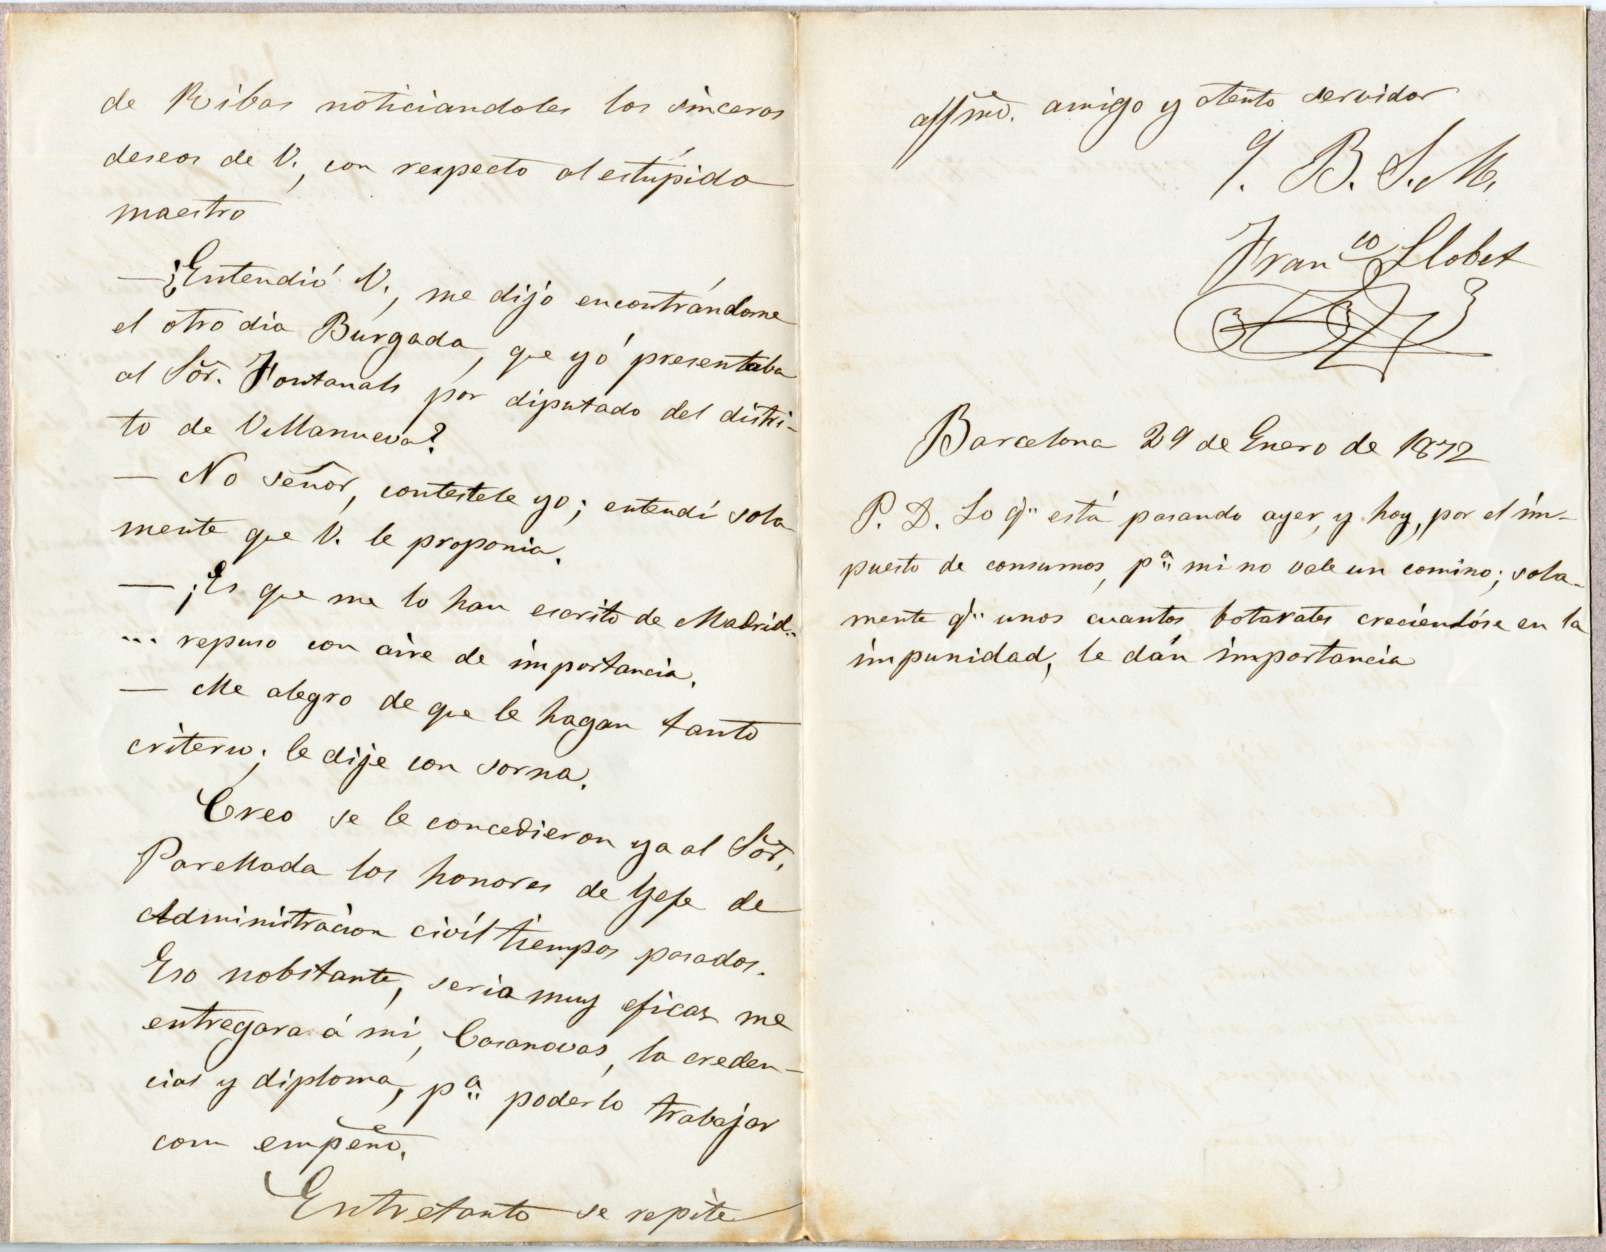 de Ribas noticiandoles los sinceros
deseos de V., con respecto al estúpido
maestro
— ¿Entendió V., me dijo encontrándome
el otro dia Burgada, que yó presentaba
al Sōr. Fontanals por diputado del distri-
to de Villanueva?
— No señor, contestele yo; entendí sola-
mente que V. le proponia.
— ¡Es que me lo han escrito de Madrid..
... repuso con aire de importancia.
— Me alegro de que le hagan tanto
criterio; le dije con sorna.
Creo se le concedieron ya al Sōr.
Parellada los honores de Gefe de
Administracion civil tiempos pasados.
Eso nobstante, seria muy eficaz me
entregara á mi, Casanovas, la creden-
cial y diploma, pª poderlo trabajar
com empeño.
Entretanto se repite
affmo. amigo y atento servidor
q. B. S. M.
Franco Llobet
Barcelona 29 de Enero de 1872
P. D. Lo q. está pasando ayer, y hoy, por el im-
puesto de consumos, pª mi no vale un comino; sola-
mente q. unos cuantos botarates creciendóse en la
impunidad, le dán importancia